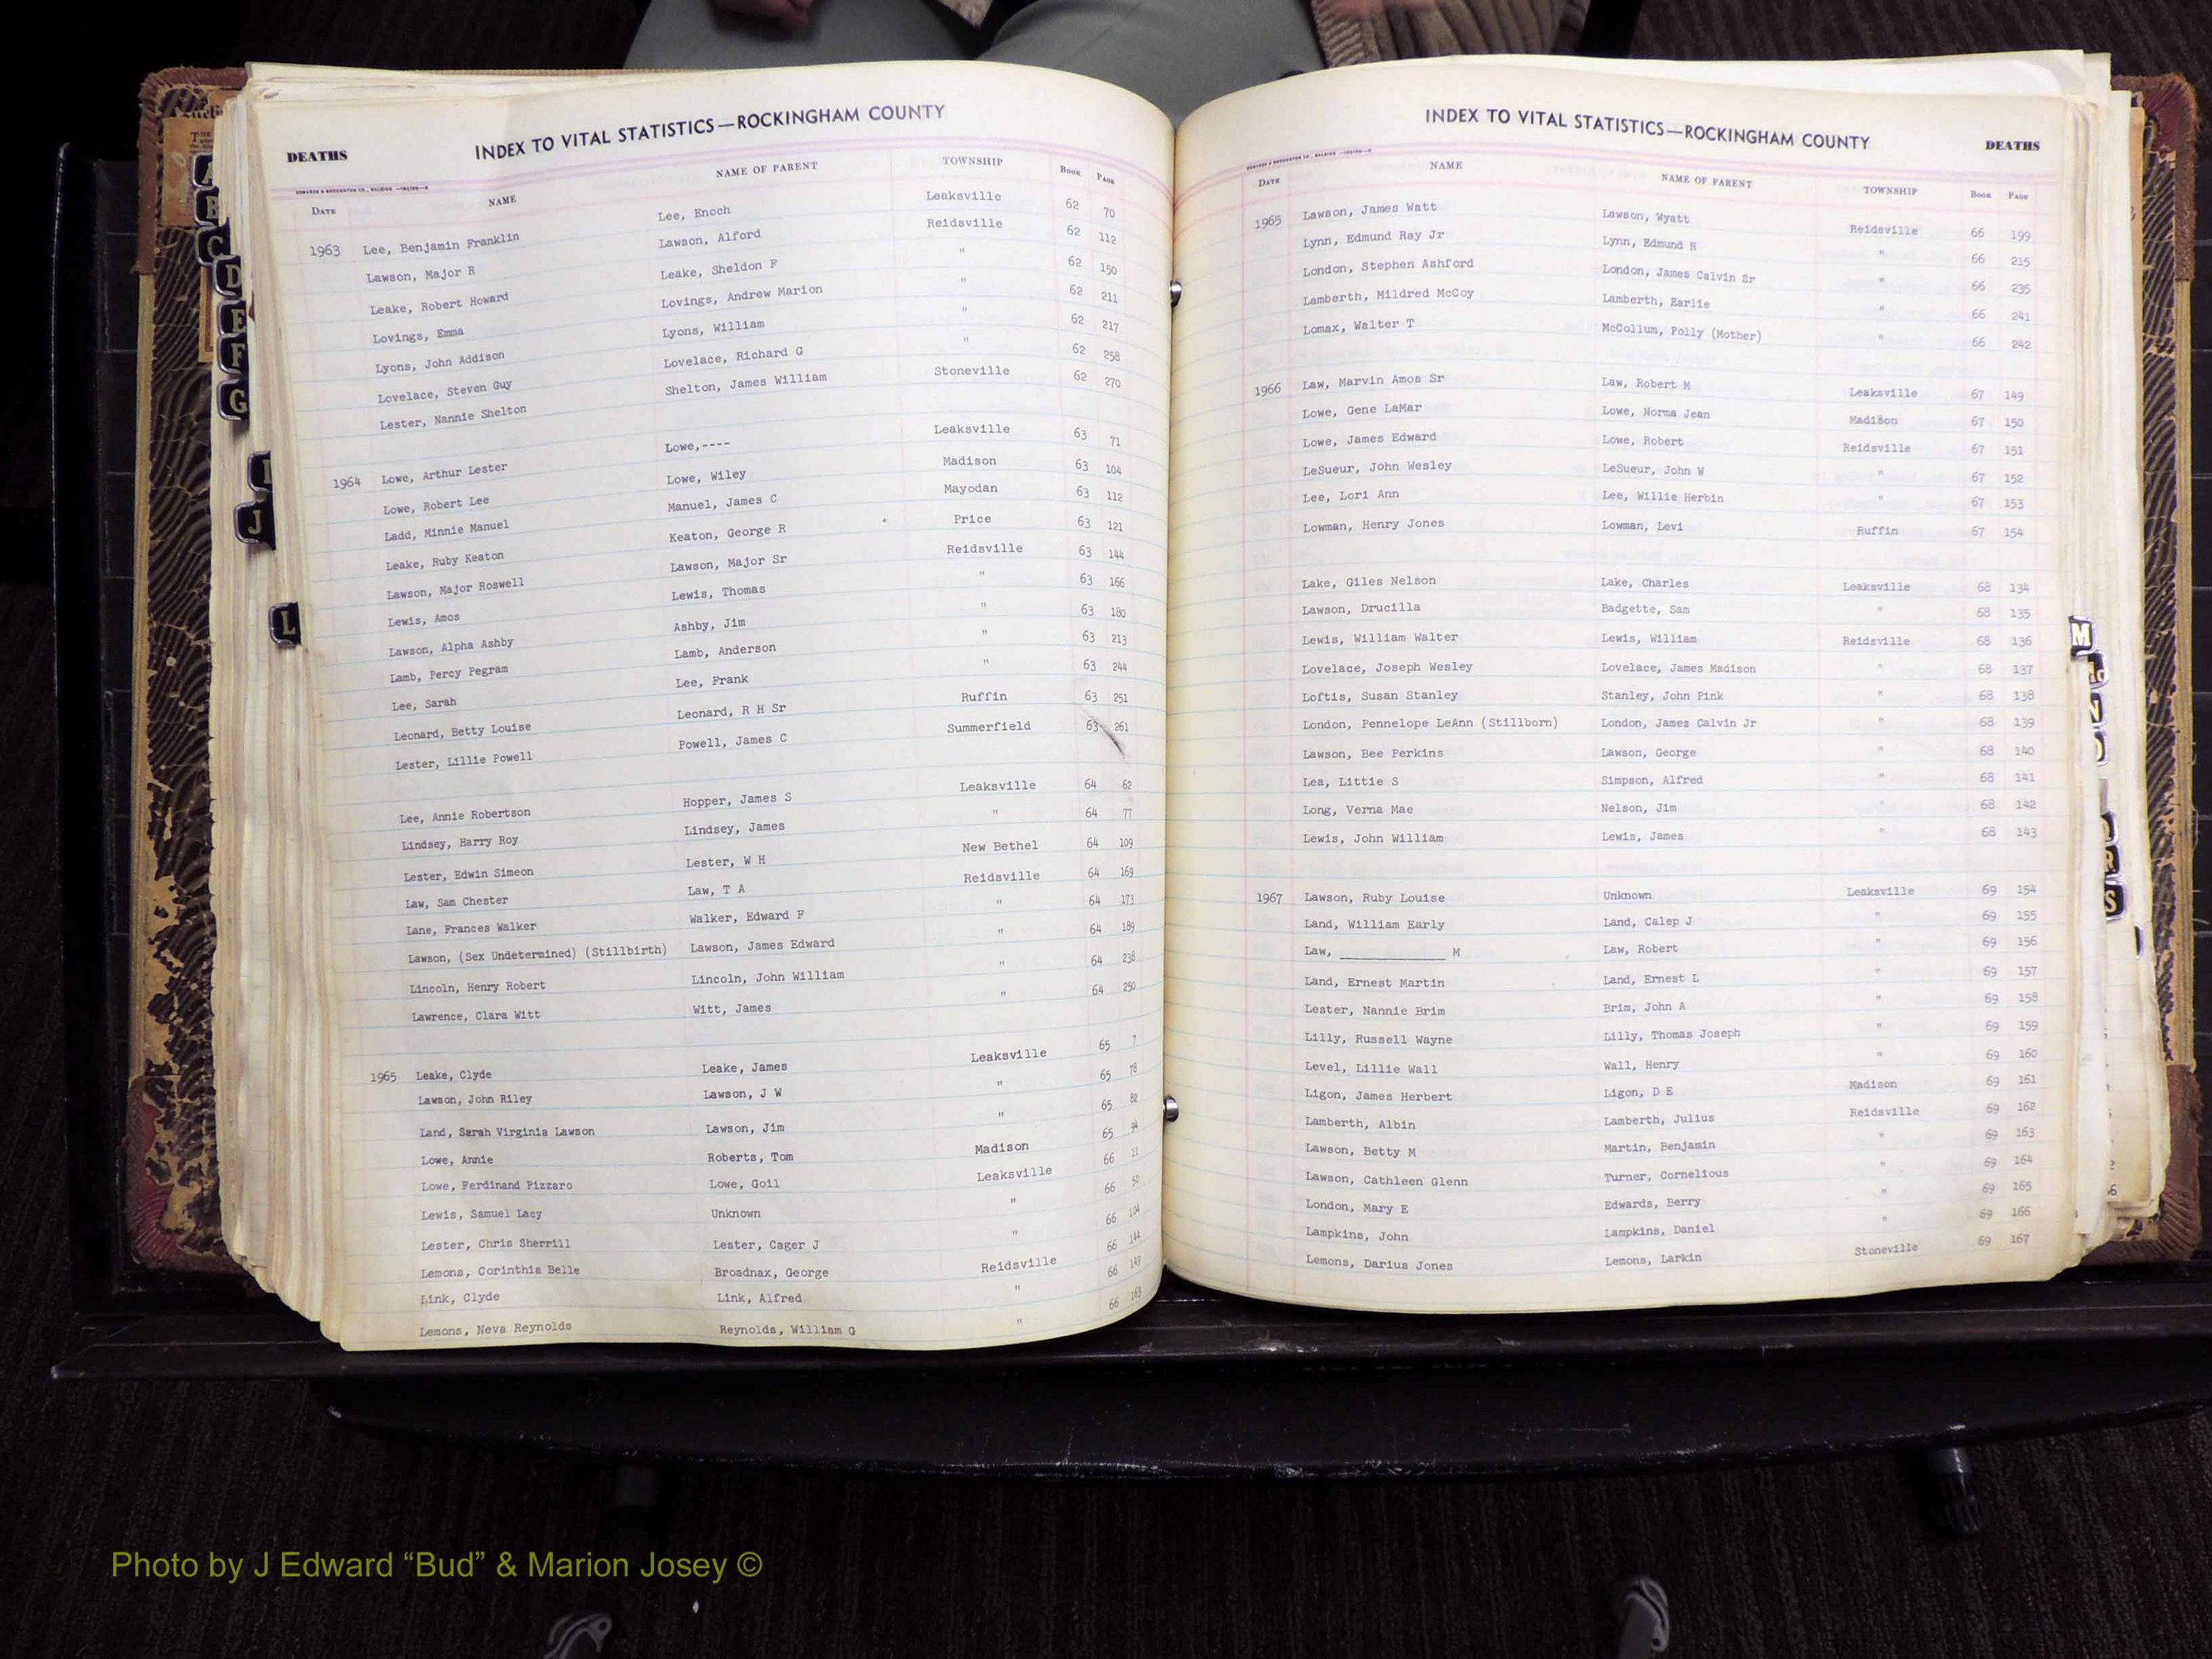 DEATHS INDEX TO VITAL STATISTICS—ROCKINGHAM COUNTY
DATE NAME NAME OF PARENT TOWNSHIP BOOK PAGE
1963 Lee, Benjamin Franklin Lee, Enoch Leaksville 62 70
Lawson, Major R Lawson, Alford Reidsville 62 112
Leake, Robert Howard Leake, Sheldon F " 62 150
Lovings, Emma Lovings, Andrew Marion " 62 211
Lyons, John Addison Lyons, William " 62 217
Lovelace, Steven Guy Lovelace, Richard G " 62 258
Lester, Nannie Shelton Shelton, James William Stoneville 62 270
1964 Lowe, Arthur Lester Lowe,---- Leaksville 63 71
Lowe, Robert Lee Lowe, Wiley Madison 63 104
Ladd, Minnie Manuel Manuel, James C Mayodan 63 112
Leake, Ruby Keaton Keaton, George R Price 63 121
Lawson, Major Roswell Lawson, Major Sr Reidsville 63 144
Lewis, Amos Lewis, Thomas " 63 166
Lawson, Alpha Ashby Ashby, Jim " 63 180
Lamb, Percy Pegram Lamb, Anderson " 63 213
Lee, Sarah Lee, Frank " 63 244
Leonard, Betty Louise Leonard, R H Sr Ruffin 63 251
Lester, Lillie Powell Powell, James C Summerfield 63 261
Lee, Annie Robertson Hopper, James S Leaksville 64 62
Lindsey, Harry Roy Lindsey, James " 64 77
Lester, Edwin Simeon Lester, W H New Bethel 64 109
Law, Sam Chester Law, T A Reidsville 64 169
Lane, Frances Walker Walker, Edward F " 64 173
Lawson, (Sex Undetermined) (Stillbirth) Lawson, James Edward " 64 189
Lincoln, Henry Robert Lincoln, John William " 64 238
Lawrence, Clara Witt Witt, James " 64 250
1965 Leake, Clyde Leake, James Leaksville 65 7
Lawson, John Riley Lawson, J W " 65 78
Land, Sarah Virginia Lawson Lawson, Jim " 65 82
Lowe, Annie Roberts, Tom Madison 65 94
Lowe, Ferdinand Pizzaro Lowe, Goil Leaksville 66 11
Lewis, Samuel Lacy Unknown " 66 50
Lester, Chris Sherrill Lester, Cager J " 66 104
Lemons, Corinthia Belle Broadnax, George Reidsville 66 144
Link, Clyde Link, Alfred " 66 149
Lemons, Neva Reynolds Reynolds, William G " 66 163
INDEX TO VITAL STATISTICS—ROCKINGHAM COUNTY DEATHS
DATE NAME NAME OF PARENT TOWNSHIP BOOK PAGE
1965 Lawson, James Watt Lawson, Wyatt Reidsville 66 199
Lynn, Edmund Ray Jr Lynn, Edmund R " 66 215
London, Stephen Ashford London, James Calvin Sr " 66 235
Lamberth, Mildred McCoy Lamberth, Earlie " 66 241
Lomax, Walter T McCollum, Polly (Mother) " 66 242
1966 Law, Marvin Amos Sr Law, Robert M Leaksville 67 149
Lowe, Gene LaMar Lowe, Norma Jean Madison 67 150
Lowe, James Edward Lowe, Robert Reidsville 67 151
LeSueur, John Wesley LeSueur, John W " 67 152
Lee, Lori Ann Lee, Willie Herbin " 67 153
Lowman, Henry Jones Lowman, Levi Ruffin 67 154
Lake, Giles Nelson Lake, Charles Leaksville 68 134
Lawson, Drucilla Badgette, Sam " 68 135
Lewis, William Walter Lewis, William Reidsville 68 136
Lovelace, Joseph Wesley Lovelace, James Madison " 68 137
Loftis, Susan Stanley Stanley, John Pink " 68 138
London, Pennelope LeAnn (Stillborn) London, James Calvin Jr " 68 139
Lawson, Bee Perkins Lawson, George " 68 140
Lea, Littie S Simpson, Alfred " 68 141
Long, Verna Mae Nelson, Jim " 68 142
Lewis, John William Lewis, James " 68 143
1967 Lawson, Ruby Louise Unknown Leaksville 69 154
Land, William Early Land, Calep J " 69 155
Law, ______________ M Law, Robert " 69 156
Land, Ernest Martin Land, Ernest L " 69 157
Lester, Nannie Brim Brim, John A " 69 158
Lilly, Russell Wayne Lilly, Thomas Joseph " 69 159
Level, Lillie Wall Wall, Henry " 69 160
Ligon, James Herbert Ligon, D E Madison 69 161
Lamberth, Albin Lamberth, Julius Reidsville 69 162
Lawson, Betty M Martin, Benjamin " 69 163
Lawson, Cathleen Glenn Turner, Cornelious " 69 164
London, Mary E Edwards, Berry " 69 165
Lampkins, John Lampkins, Daniel " 69 166
Lemons, Darius Jones Lemons, Larkin Stoneville 69 167
A
B
C
D
E
F
G
I
J
L
M
N
O
R
S
Photo by J Edward “Bud” & Marion Josey ©